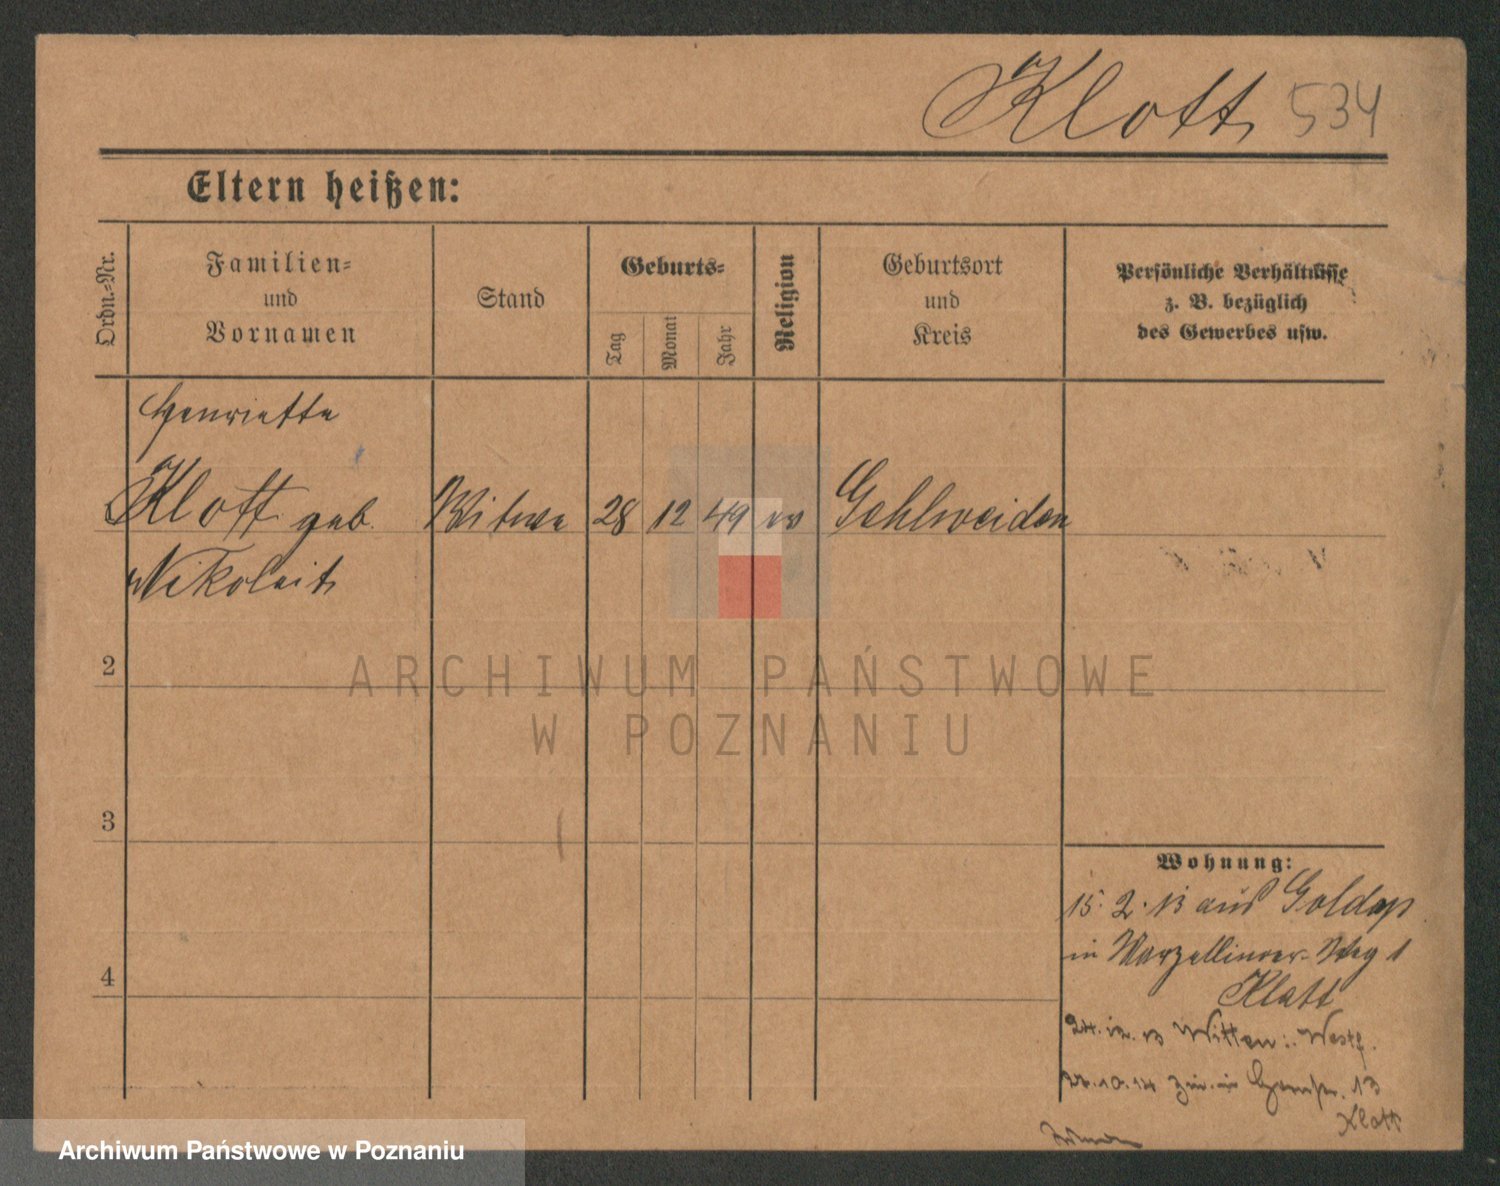 Klott 534
Eltern heißen:
Ordn.-Nr.
Familien-
und
Vornamen
Stand
Geburts-
Tag
Monat
Jahr
Religion
Geburtsort
und
Kreis
Persönliche Verhältnisse
z. B. bezüglich
des Gewerbes usw.
Henriette
Klott geb.
Witwe 28 12 49 ev Gehlweiden
Nikoleit
2
ARCHIWUM PAŃSTWOWE
W POZNANIU
3
4
Wohnung:
15. 2. 13 aus Goldap
in Weg 1
Klatt
24. 12. 13 Witten Westf.
10. 14 13
Klatt
Archiwum Państwowe w Poznaniu